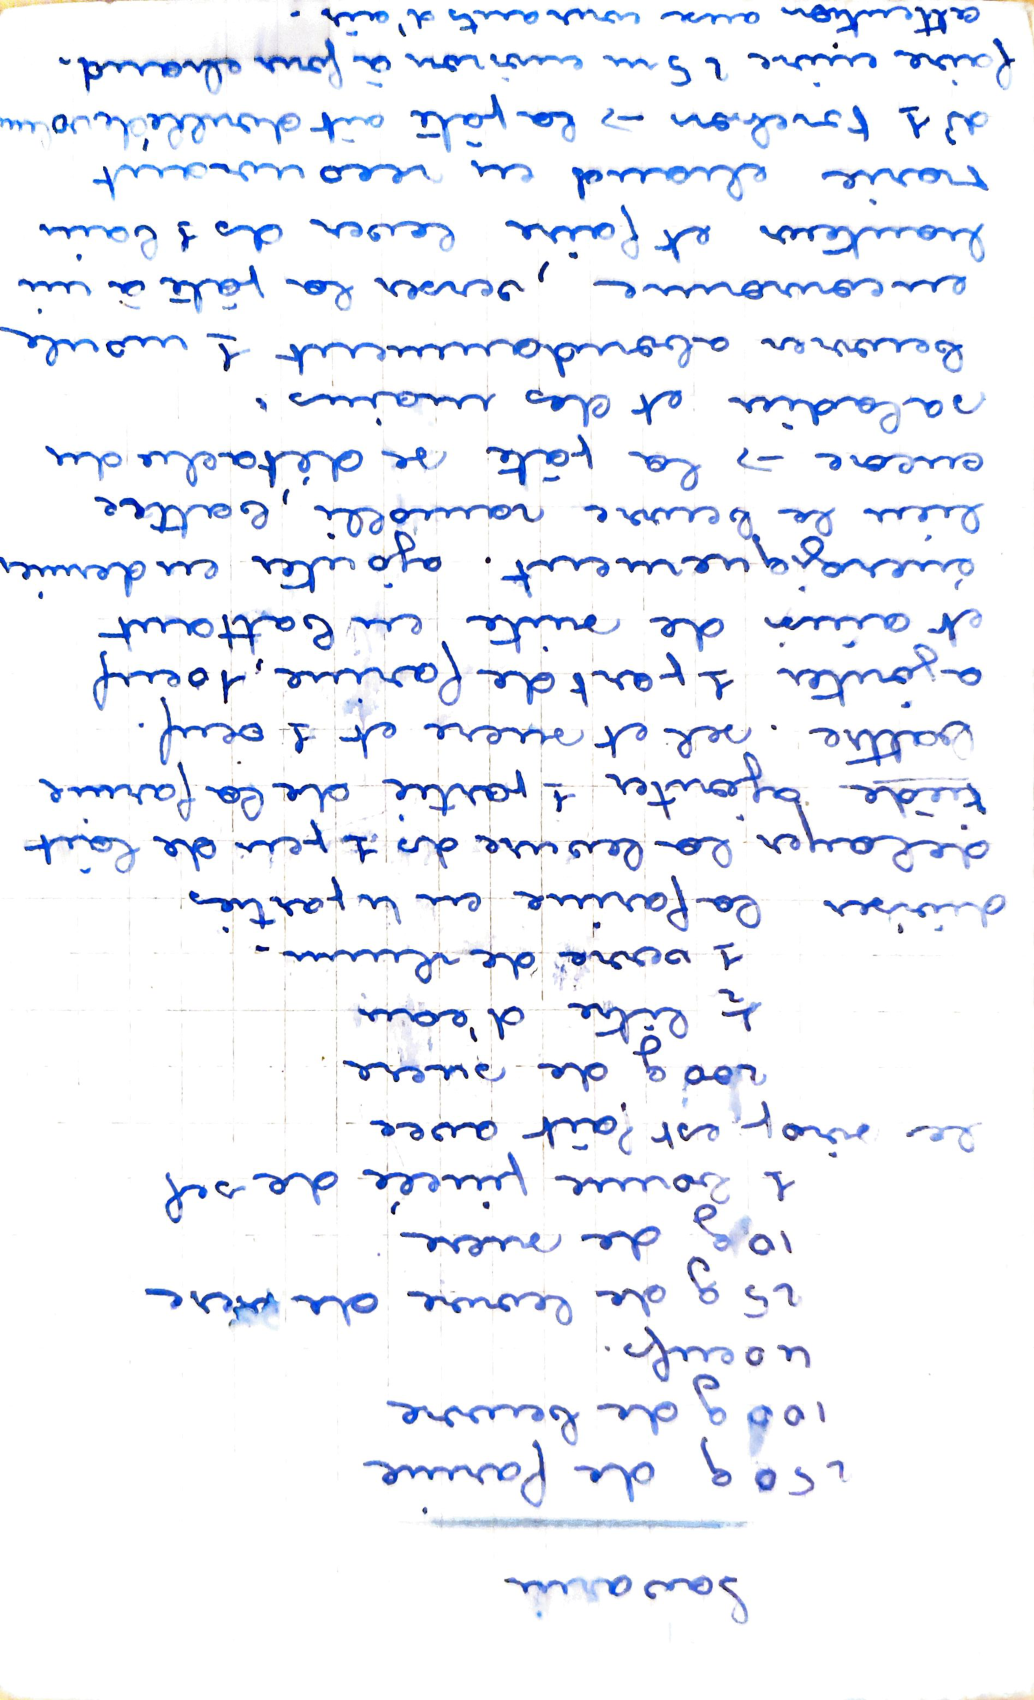 Savarin
250 g de farine
100 g de beurre
4 oeufs.
25 g de levure de bière
10 g de sucre
1 bonne pincée de sel
le sirop est fait avec
200 g de sucre
½ litre d'eau
1 verre de rhum.
diviser la farine en 4 parties
délayer la levure ds 1 peu de lait
tiède ajouter 1 partie de la farine
battre. sel et sucre et 1 oeuf.
ajouter 1 part de farine, 1 oeuf
et ainsi de suite en battant
énergiquement. ajouter en dernier
lieu le beurre ramolli, battre
encore → la pâte se détache du
saladier et des mains.
beurrer abondamment 1 moule
en couronne, verser la pâte à mi
hauteur et faire lever ds 1 bain
marie chaud en recouvrant
d' 1 torchon → la pâte ait doublé de volume
faire cuire 25 m environ à four chaud.
attention aux courants d'air.